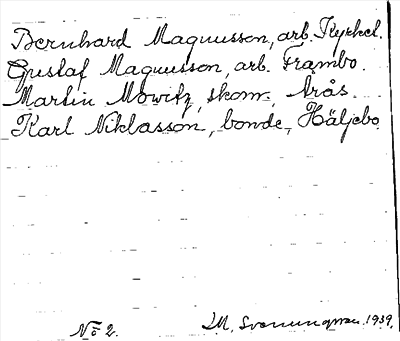 Bernhard Magnusson, arb. Kyrkel.
Gustaf Magnusson, arb. Frambo.
Martin Mowitz, skom, Arås.
Karl Niklasson, bonde, Häljebo
No 2. M. Svenungsson 1939.